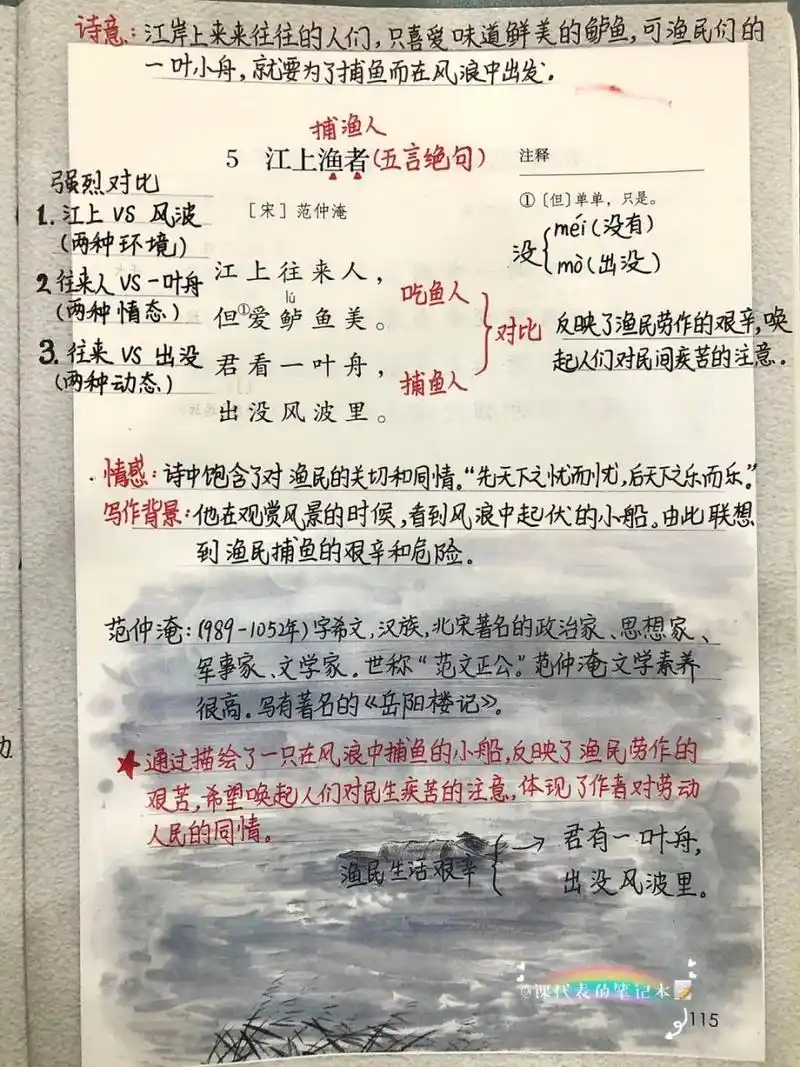 诗意：江岸上来来往往的人们，只喜爱味道鲜美的鲈鱼，可渔民们的
一叶小舟，就要为了捕鱼而在风浪中出发。
捕渔人
5 江上渔者(五言绝句)
[宋] 范仲淹
注释
①〔但〕单单，只是。
没 méi(没有)
mò(出没)
强烈对比
1. 江上 VS 风波
(两种环境)
2. 往来人 VS 一叶舟
(两种情态)
3. 往来 VS 出没
(两种动态)
江上往来人，
lú
但①爱鲈鱼美。
君看一叶舟，
出没风波里。
吃鱼人
捕鱼人
对比
反映了渔民劳作的艰辛，唤
起人们对民间疾苦的注意.
情感：诗中饱含了对渔民的关切和同情。“先天下之忧而忧，后天下之乐而乐。”
写作背景：他在观赏风景的时候，看到风浪中起伏的小船。由此联想
到渔民捕鱼的艰辛和危险。
范仲淹：(989-1052年)字希文，汉族，北宋著名的政治家、思想家、
军事家、文学家。世称“范文正公。”范仲淹文学素养
很高。写有著名的《岳阳楼记》。
★通过描绘了一只在风浪中捕鱼的小船，反映了渔民劳作的
艰苦，希望唤起人们对民生疾苦的注意，体现了作者对劳动
人民的同情。
渔民生活艰辛 → 君有一叶舟，
出没风波里。
@课代表的笔记本
115